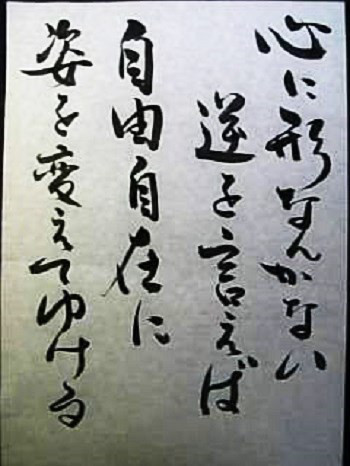 心に形なんかない
逆を言えば
自由自在に
姿を変えてゆける